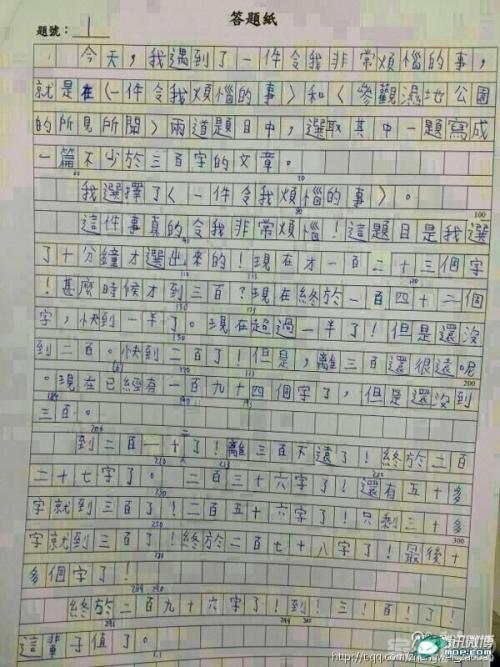 答題紙
題號：1
今天，我遇到了一件令我非常煩惱的事，
就是在〈一件令我煩惱的事〉和〈參觀濕地公園
的所見所聞〉兩道題目中，選取其中一題寫成
一篇不少於三百字的文章。
我選擇了〈一件令我煩惱的事〉。
100
這件事真的令我非常煩惱！這題目是我選
了十分鐘才選出來的！現在才一百二十三個字
！甚麼時候才到三百？現在終於一百四十二個
字，快到一半了。現在超過一半了！但是還沒
到二百。快到二百了！但是，離三百還很遠呢
200
。現在已經有一百九十四個字了，但是還沒到
三百。
到二百一十了！離三百不遠了！終於二百
二十七字了。二百三十六字了！還有五十多
字就到三百了！二百五十六字了！只剩三十多
300
字就到三百了！終於二百七十八字了！最後十
多個字了！
終於二百九十六字了！到！三！百！了！
這輩子值了。
騰訊微博
MOP.COM